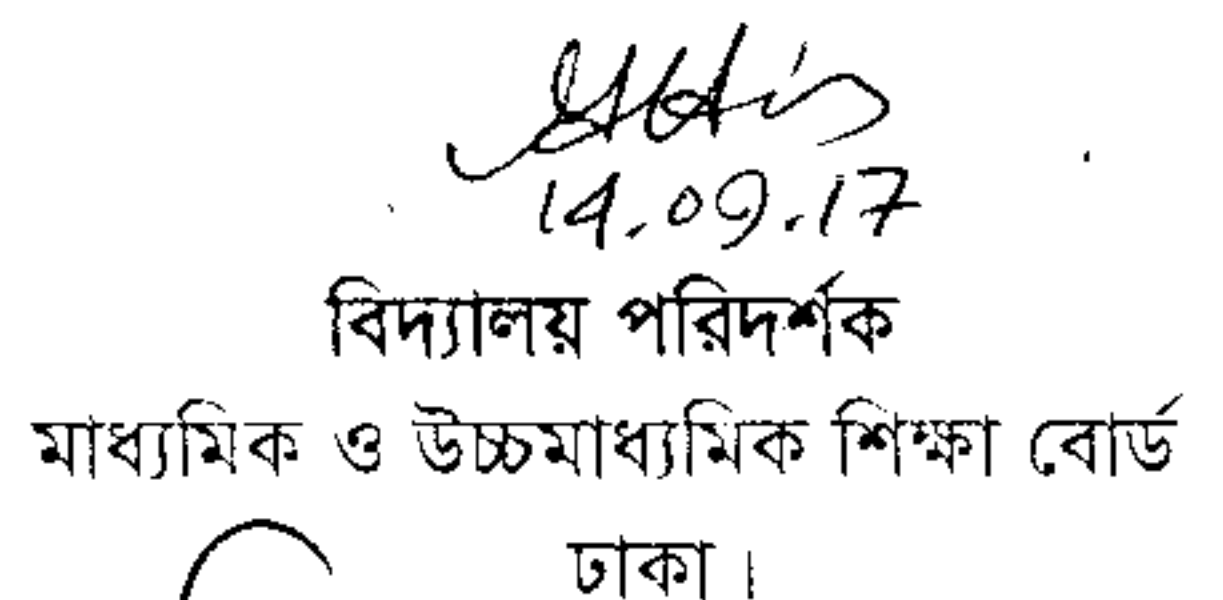 14.09.17
বিদ্যালয় পরিদর্শক
মাধ্যমিক ও উচ্চমাধ্যমিক শিক্ষা বোর্ড
ঢাকা।